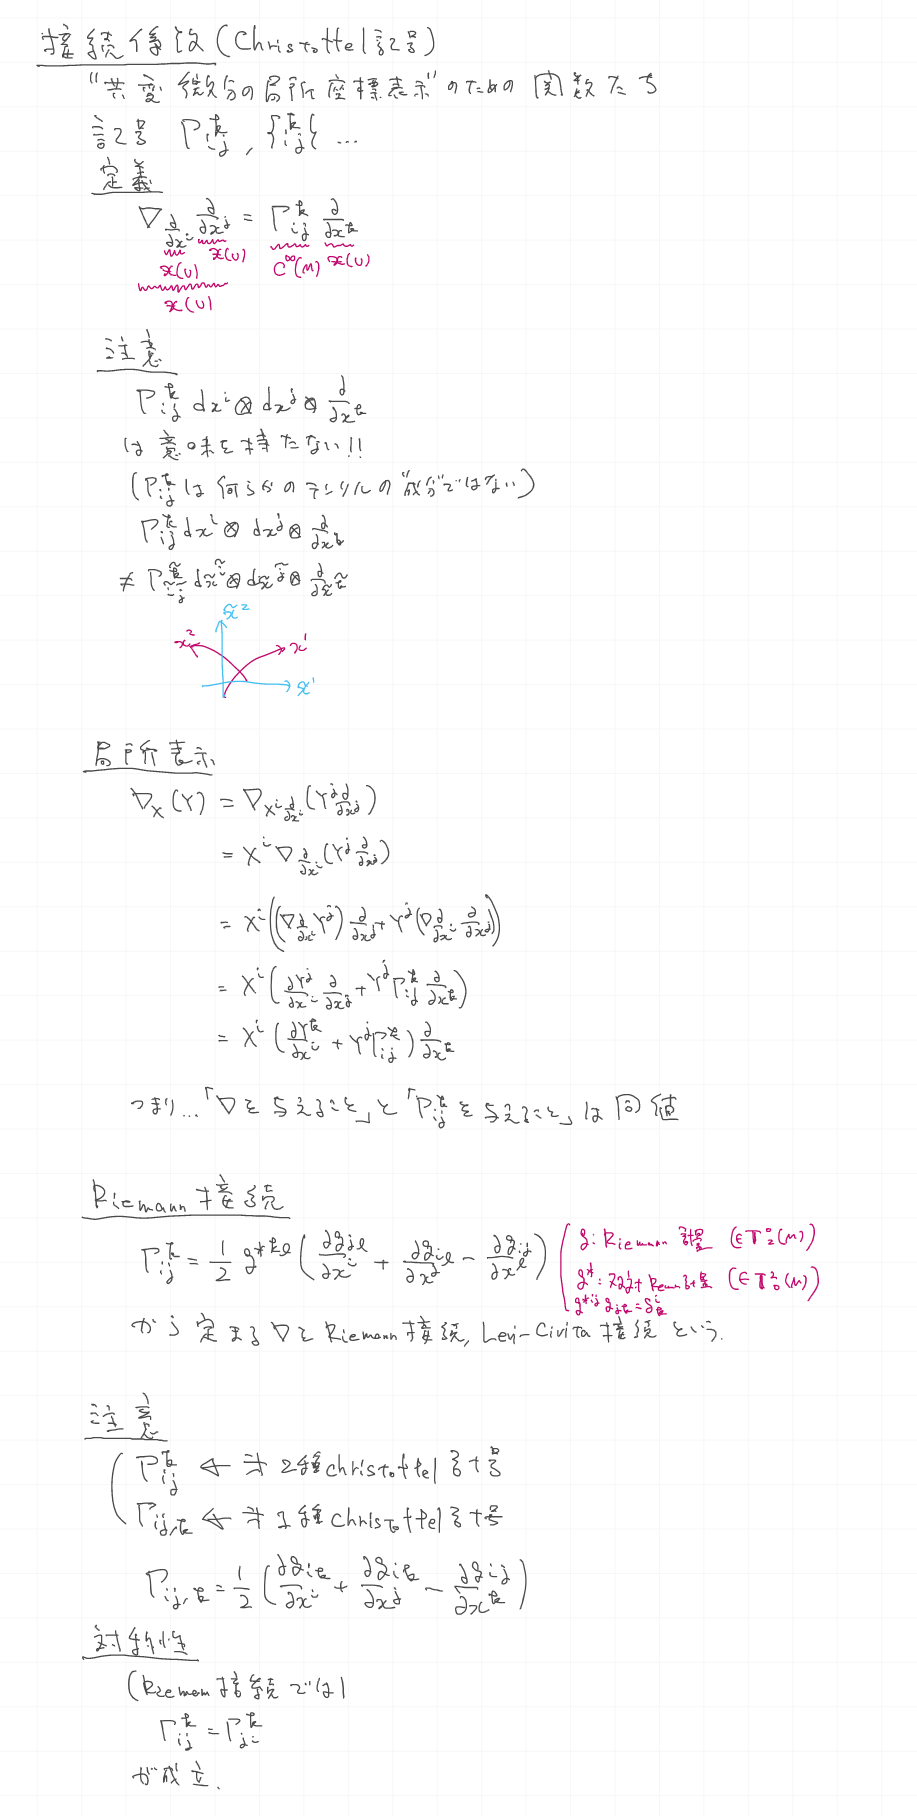 接続係数(Christoffel記号)
"共変微分の局所座標表示"のための関数たち
記号 Γ_{ij}^k, {_{ij}^k} ...
定義
∇_{∂/∂x^i} ∂/∂x^j = Γ_{ij}^k ∂/∂x^k
𝔛(U) 𝔛(U) C^∞(M) 𝔛(U)
𝔛(U)
注意
Γ_{ij}^k dx^i⊗dx^j⊗∂/∂x^k
は意味を持たない!!
(Γ_{ij}^k は何らかのテンソルの"成分"ではない)
Γ_{ij}^k dx^i⊗dx^j⊗∂/∂x^k
≠ Γ_{ĩj̃}^{k̃} dx̃^ĩ⊗dx̃^j̃⊗∂/∂x̃^k̃
x̃^2
x^2 x^1
x̃^1
局所表示
∇_X(Y) = ∇_{X^i ∂/∂x^i}(Y^j ∂/∂x^j)
= X^i ∇_{∂/∂x^i}(Y^j ∂/∂x^j)
= X^i((∇_{∂/∂x^i} Y^j) ∂/∂x^j + Y^j(∇_{∂/∂x^i} ∂/∂x^j))
= X^i(∂Y^j/∂x^i ∂/∂x^j + Y^j Γ_{ij}^k ∂/∂x^k)
= X^i(∂Y^k/∂x^i + Y^j Γ_{ij}^k) ∂/∂x^k
つまり...「∇を与えること」と「Γ_{ij}^k を与えること」は同値
Riemann接続
Γ_{ij}^k = 1/2 g^{*kl} (∂g_{jl}/∂x^i + ∂g_{il}/∂x^j − ∂g_{ij}/∂x^l)
g: Riemann計量 (∈T^0_2(M))
g^*: Riem計量 (∈T^2_0(M))
g^{*ij} g_{jk} = δ^i_k
から定まる∇をRiemann接続, Levi-Civita接続という.
注意
Γ_{ij}^k ← 第2種christoffel記号
Γ_{ij,k} ← 第1種christoffel記号
Γ_{ij,k} = 1/2 (∂g_{ik}/∂x^i + ∂g_{ik}/∂x^j − ∂g_{ij}/∂x^k)
対称性
(Riemann接続では)
Γ_{ij}^k = Γ_{ji}^k
が成立.